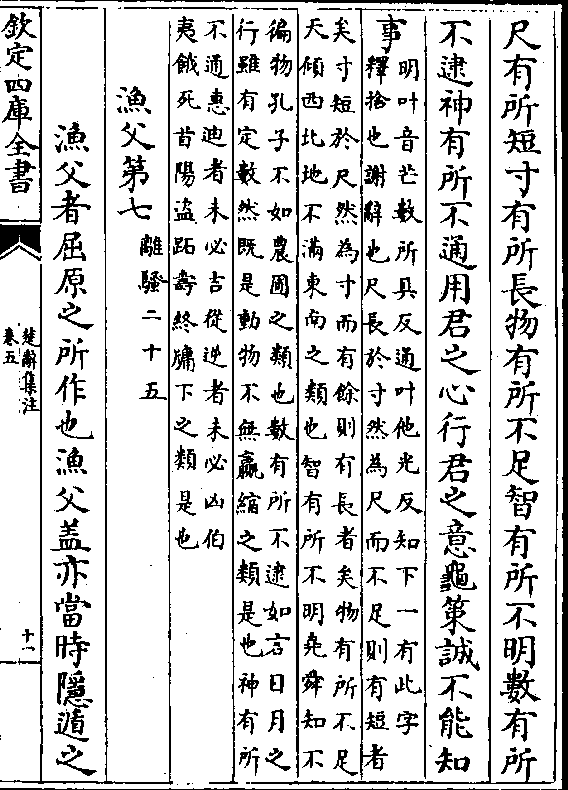 尺有所短寸有所長物有所不足智有所不明數有所
不逮神有所不通用君之心行君之意龜策誠不能知
事
明叶音芒數所具反通叶他光反知下一有此字
釋捨也謝辭也尺長於寸然為尺而不足則有短者
矣寸短於尺然為寸而有餘則有長者矣物有所不足
天傾西北地不滿東南之類也智有所不明堯舜知不
徧物孔子不如農圃之類也數有所不逮如言日月之
行雖有定數然既是動物不無贏縮之類是也神有所
不通惠迪者未必吉從逆者未必凶伯
夷餓死首陽盜跖壽終牖下之類是也
漁父第七
離騷二十五
漁父者屈原之所作也漁父盖亦當時隱遁之
欽定四庫全書
楚辭集注
卷五
十一